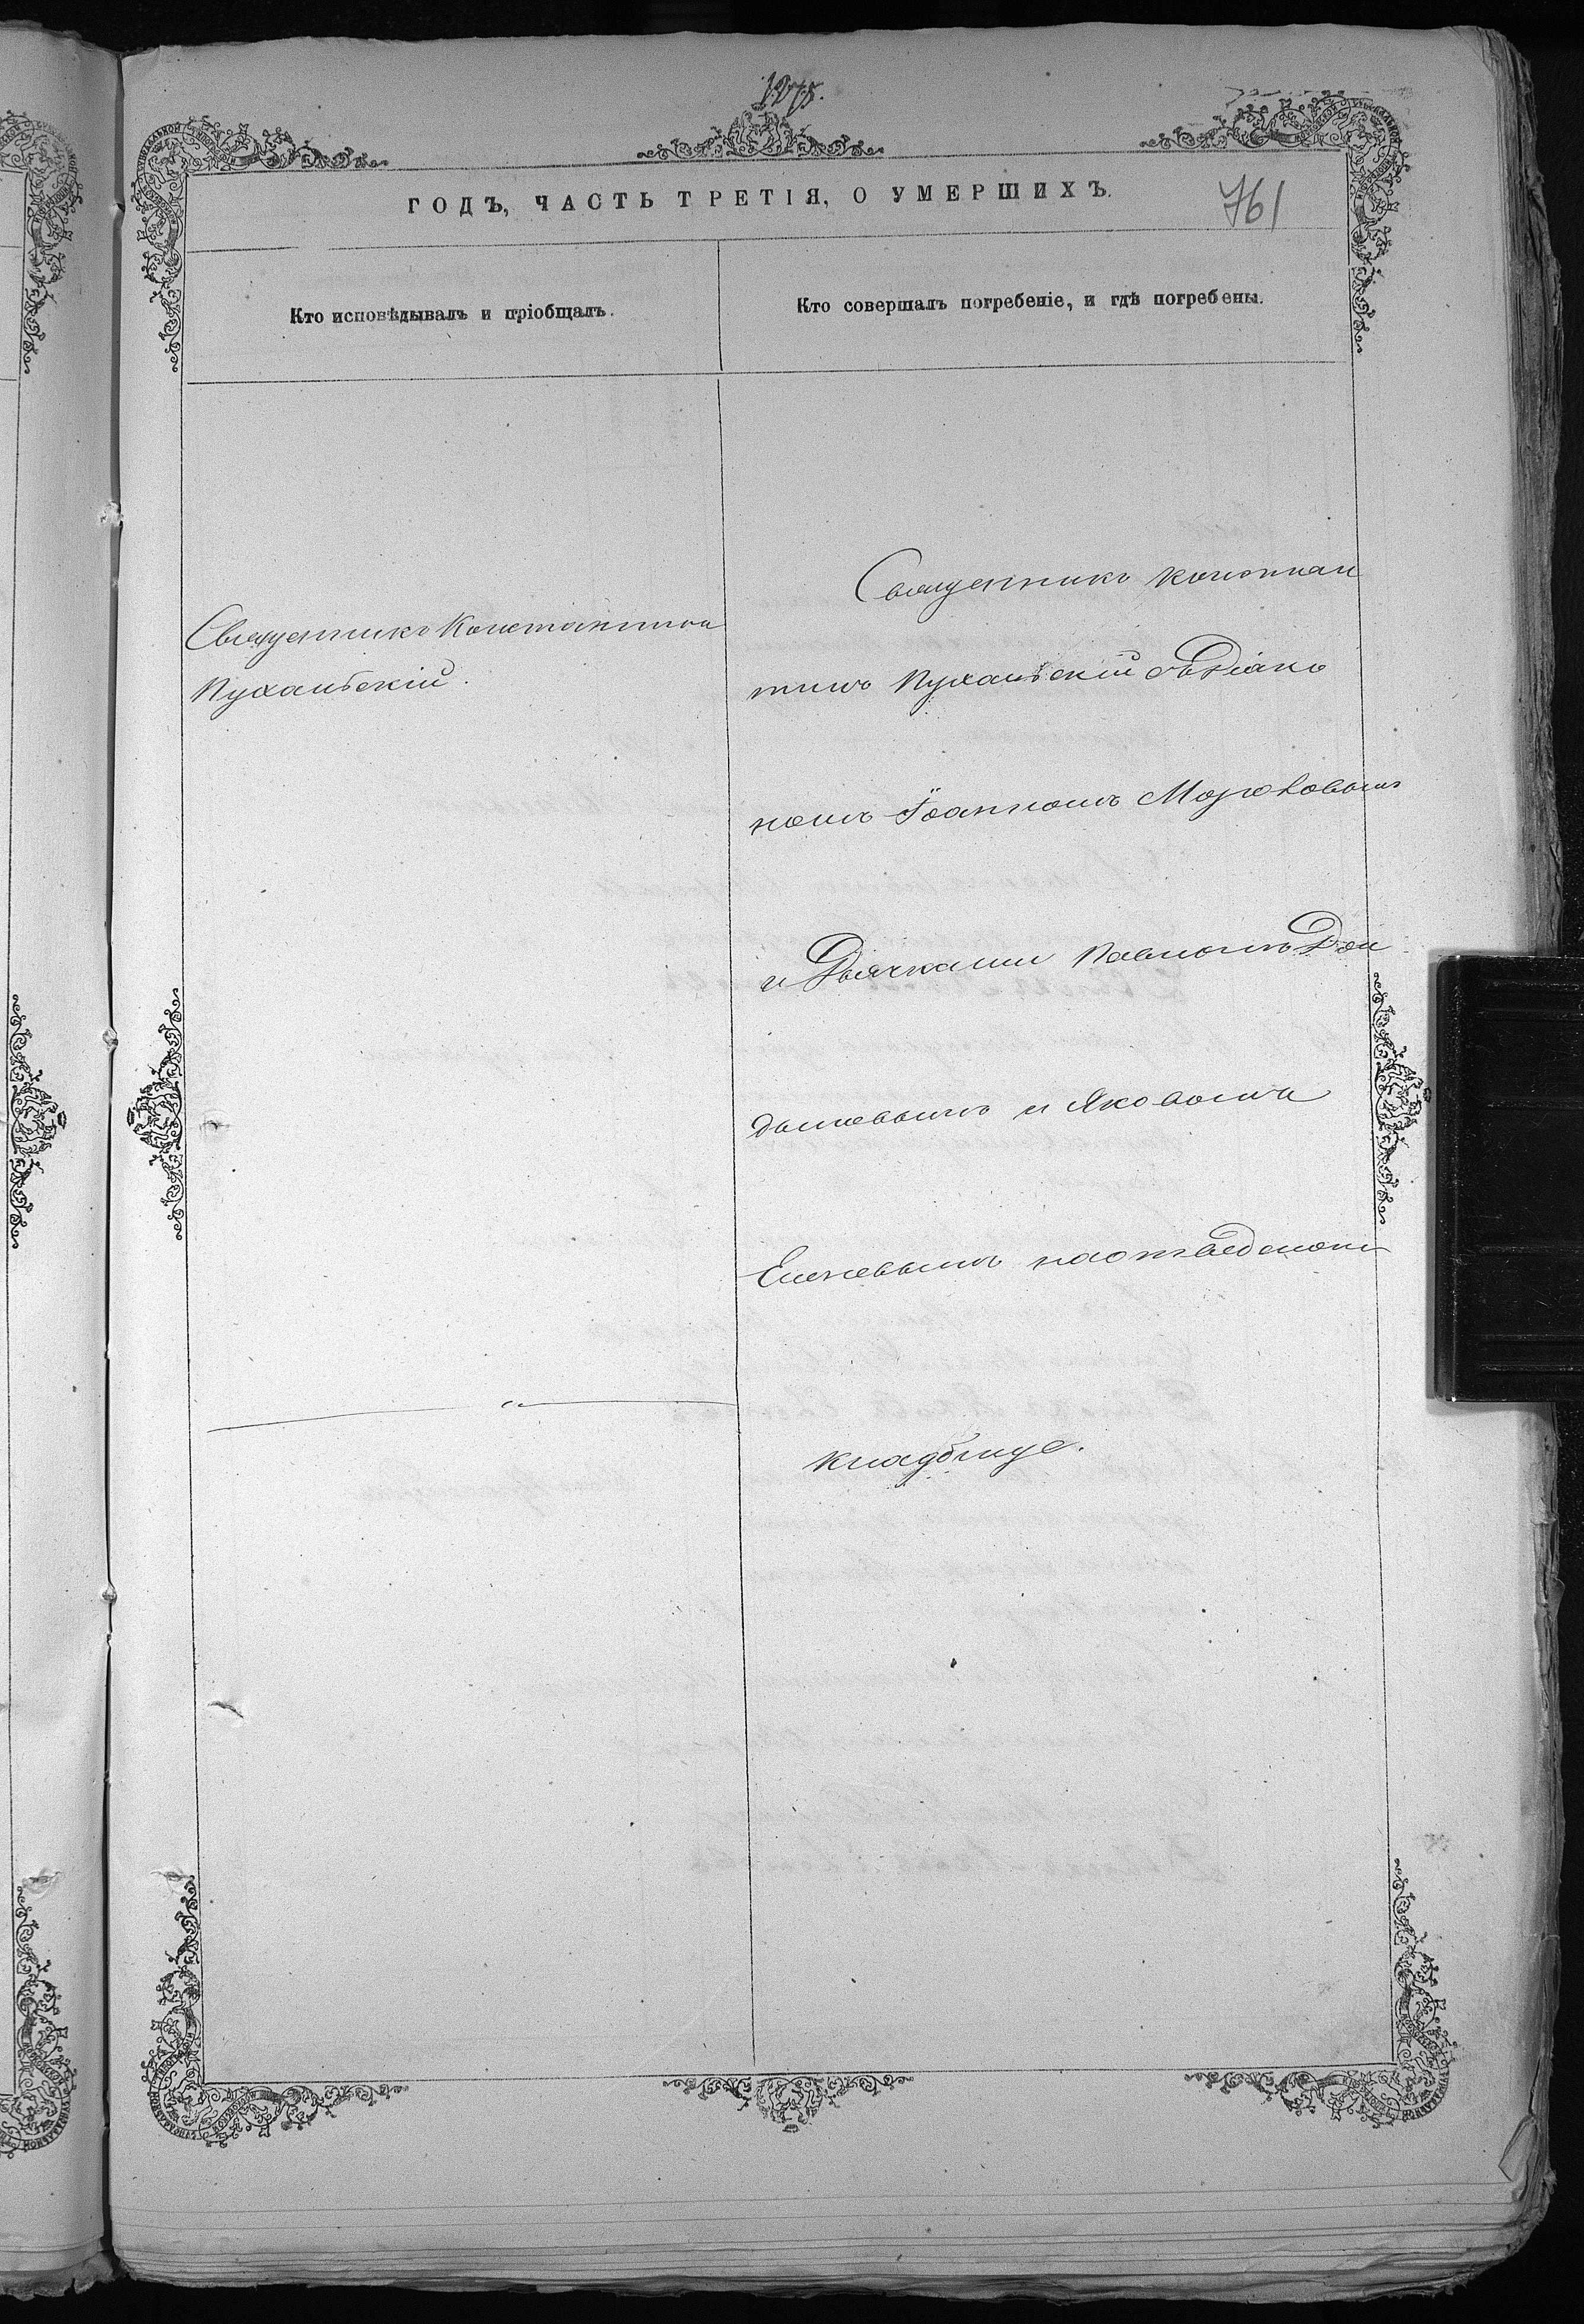 1875.
ГОДЪ, ЧАСТЬ ТРЕТІЯ, О УМЕРШИХЪ.
761
Кто исповѣдывалъ и пріобщалъ.
Кто совершалъ погребеніе, и гдѣ погребены.
Священникъ Константинъ
Пухальскій.
Священникъ Констан
тинъ Пухальскій съ Діако
номъ Іоанномъ Морововымъ
и Дьячками Павломъ
и Яковомъ
наотведеномъ
кладбище.